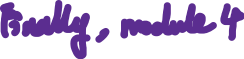 Finally, module 4